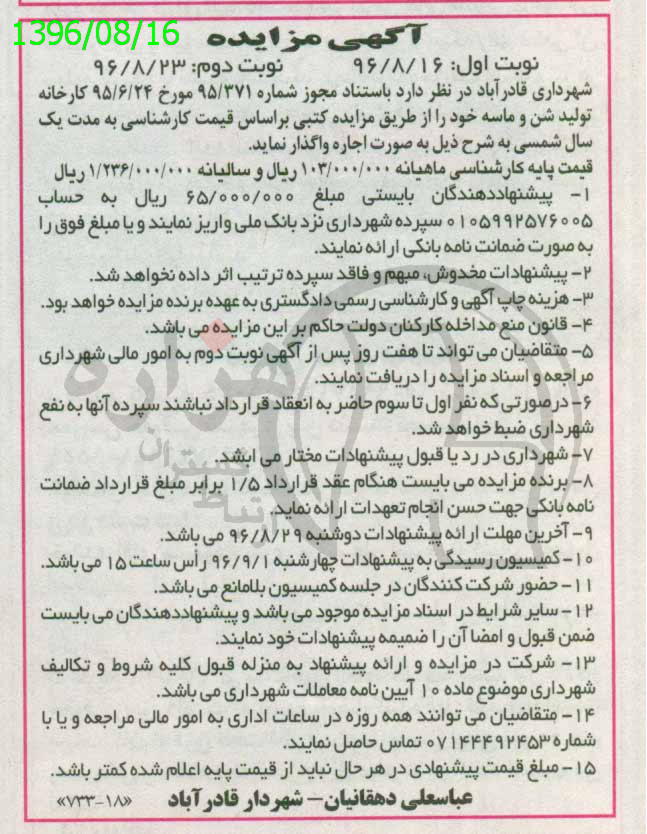 1396/08/16
آگهی مزایده
نوبت اول: ۹۶/۸/۱۶ نوبت دوم: ۹۶/۸/۲۳
شهرداری قادرآباد در نظر دارد باستناد مجوز شماره ۹۵/۳۷۱ مورخ ۹۵/۶/۲۴ کارخانه
تولید شن و ماسه خود را از طریق مزایده کتبی براساس قیمت کارشناسی به مدت یک
سال شمسی به شرح ذیل به صورت اجاره واگذار نماید.
قیمت پایه کارشناسی ماهیانه ۱۰۳/۰۰۰/۰۰۰ ریال و سالیانه ۱/۲۳۶/۰۰۰/۰۰۰ ریال
۱- پیشنهاددهندگان بایستی مبلغ ۶۵/۰۰۰/۰۰۰ ریال به حساب
۰۱۰۵۹۹۲۵۷۶۰۰۵ سپرده شهرداری نزد بانک ملی واریز نمایند و یا مبلغ فوق را
به صورت ضمانت نامه بانکی ارائه نمایند.
۲- پیشنهادات مخدوش، مبهم و فاقد سپرده ترتیب اثر داده نخواهد شد.
۳- هزینه چاپ آگهی و کارشناسی رسمی دادگستری به عهده برنده مزایده خواهد بود.
۴- قانون منع مداخله کارکنان دولت حاکم بر این مزایده می باشد.
۵- متقاضیان می تواند تا هفت روز پس از آگهی نوبت دوم به امور مالی شهرداری
مراجعه و اسناد مزایده را دریافت نمایند.
۶- درصورتی که نفر اول تا سوم حاضر به انعقاد قرارداد نباشند سپرده آنها به نفع
شهرداری ضبط خواهد شد.
۷- شهرداری در رد یا قبول پیشنهادات مختار می ابشد.
۸- برنده مزایده می بایست هنگام عقد قرارداد ۱/۵ برابر مبلغ قرارداد ضمانت
نامه بانکی جهت حسن انجام تعهدات ارائه نماید.
۹- آخرین مهلت ارائه پیشنهادات دوشنبه ۹۶/۸/۲۹ می باشد.
۱۰- کمیسیون رسیدگی به پیشنهادات چهارشنبه ۹۶/۹/۱ رأس ساعت ۱۵ می باشد.
۱۱- حضور شرکت کنندگان در جلسه کمیسیون بلامانع می باشد.
۱۲- سایر شرایط در اسناد مزایده موجود می باشد و پیشنهاددهندگان می بایست
ضمن قبول و امضا آن را ضمیمه پیشنهادات خود نمایند.
۱۳- شرکت در مزایده و ارائه پیشنهاد به منزله قبول کلیه شروط و تکالیف
شهرداری موضوع ماده ۱۰ آیین نامه معاملات شهرداری می باشد.
۱۴- متقاضیان می توانند همه روزه در ساعات اداری به امور مالی مراجعه و یا با
شماره ۰۷۱۴۴۴۹۲۴۵۳ تماس حاصل نمایند.
۱۵- مبلغ قیمت پیشنهادی در هر حال نباید از قیمت پایه اعلام شده کمتر باشد.
عباسعلی دهقانیان– شهردار قادرآباد «۱۸-۷۳۳»